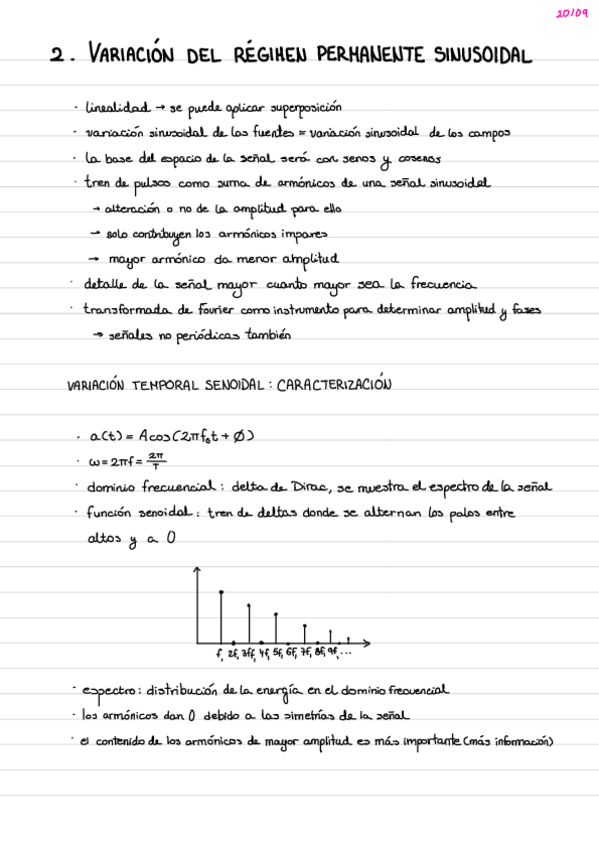 20/09
2. VARIACIÓN DEL RÉGIMEN PERMANENTE SINUSOIDAL
· linealidad → se puede aplicar superposición
· variación sinusoidal de las fuentes = variación sinusoidal de los campos
· la base del espacio de la señal será con senos y cosenos
· tren de pulsos como suma de armónicos de una señal sinusoidal
→ alteración o no de la amplitud para ello
→ solo contribuyen los armónicos impares
→ mayor armónico da menor amplitud
· detalle de la señal mayor cuanto mayor sea la frecuencia
· transformada de Fourier como instrumento para determinar amplitud y fases
→ señales no periódicas también
VARIACIÓN TEMPORAL SENOIDAL: CARACTERIZACIÓN
· a(t) = A cos(2πf₀t + Ø)
· ω = 2πf = 2π/T
· dominio frecuencial: delta de Dirac, se muestra el espectro de la señal
· función senoidal: tren de deltas donde se alternan los palos entre
altos y a 0
f, 2f, 3ff, 4f, 5f, 6f, 7f, 8f, 9f, ...
· espectro: distribución de la energía en el dominio frecuencial
· los armónicos dan 0 debido a las simetrías de la señal
· el contenido de los armónicos de mayor amplitud es más importante (más información)